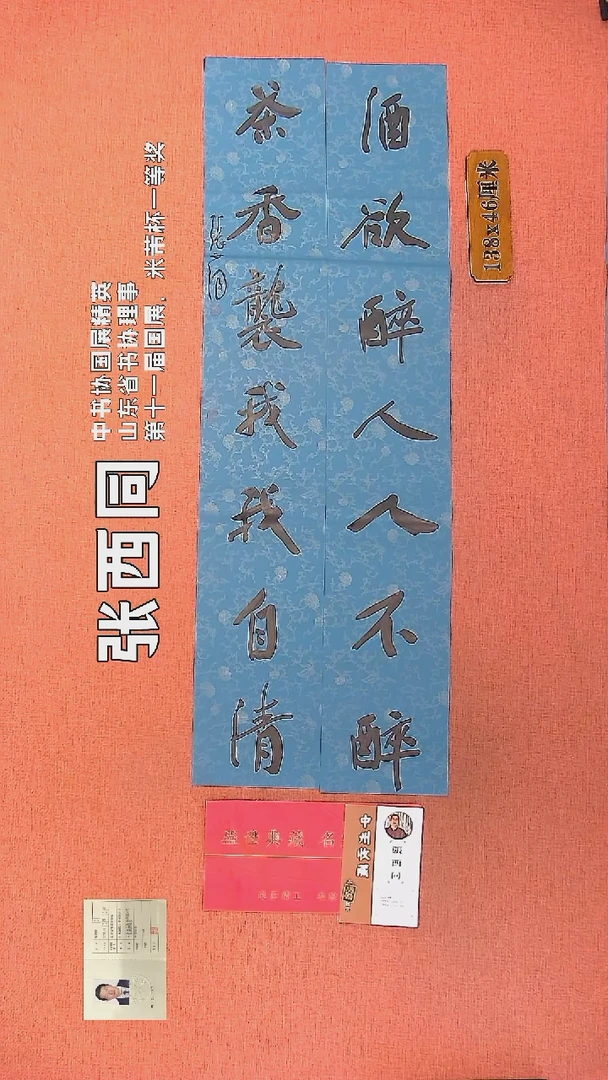 酒欲醉人人不醉
茶香袭我我自清
张西同
138x46厘米
张西同
中书协国展精英
山东省书协理事
第十一届国展、米芾杯一等奖
中州收藏
張西同